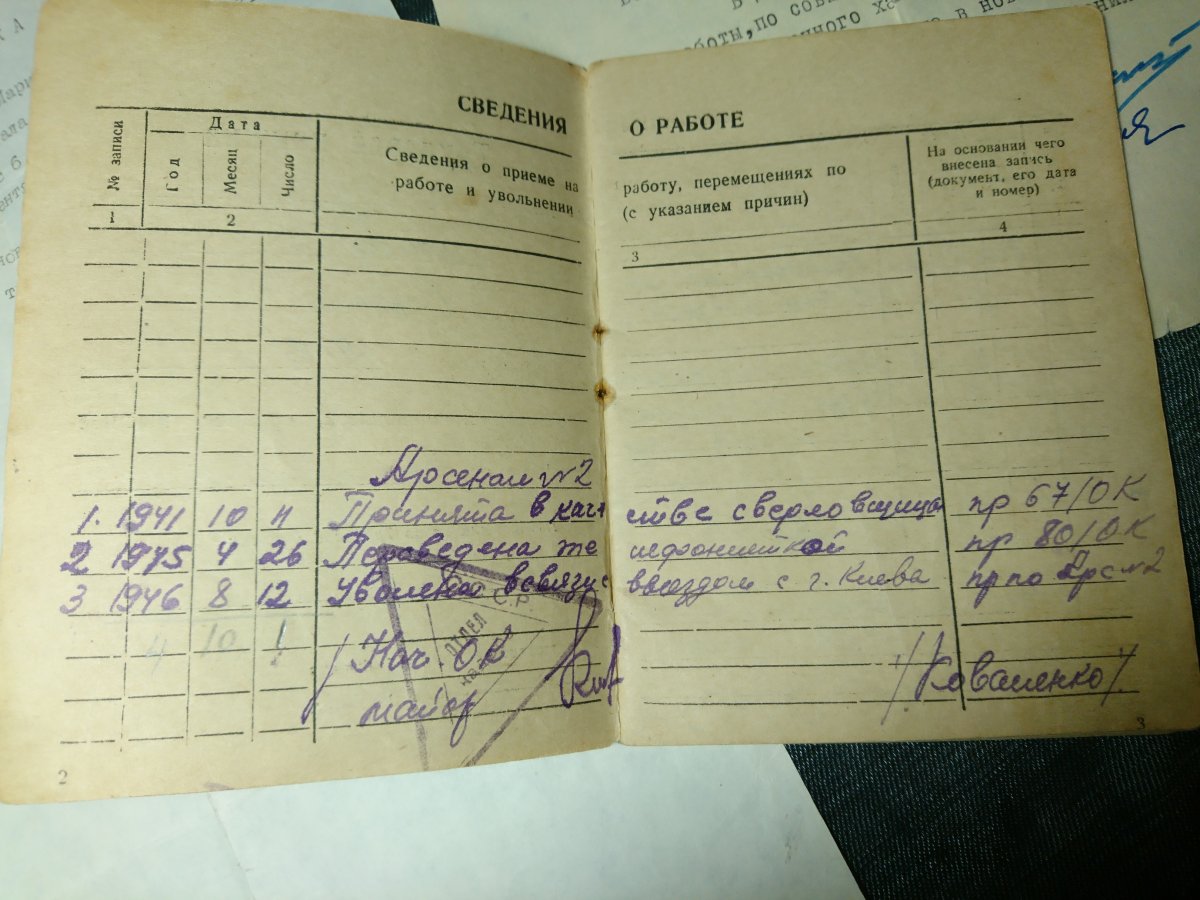 СВЕДЕНИЯ О РАБОТЕ
№ записи
Дата
Год
Месяц
Число
Сведения о приеме на работу, перемещениях по
работе и увольнении (с указанием причин)
На основании чего
внесена запись
(документ, его дата
и номер)
1 2 3 4
Арсенал №2
1. 1941 10 11 Принята в качестве сверловщицы пр 67/ОК
2 1945 4 26 Переведена телефонисткой пр 80/ОК
3 1946 8 12 Уволена всвязи с выездом с г. Киева пр по Арс №2
4 10 1
/Нач. ОК
майор /Коваленко/
ОТДЕЛ
2
3
боты, по